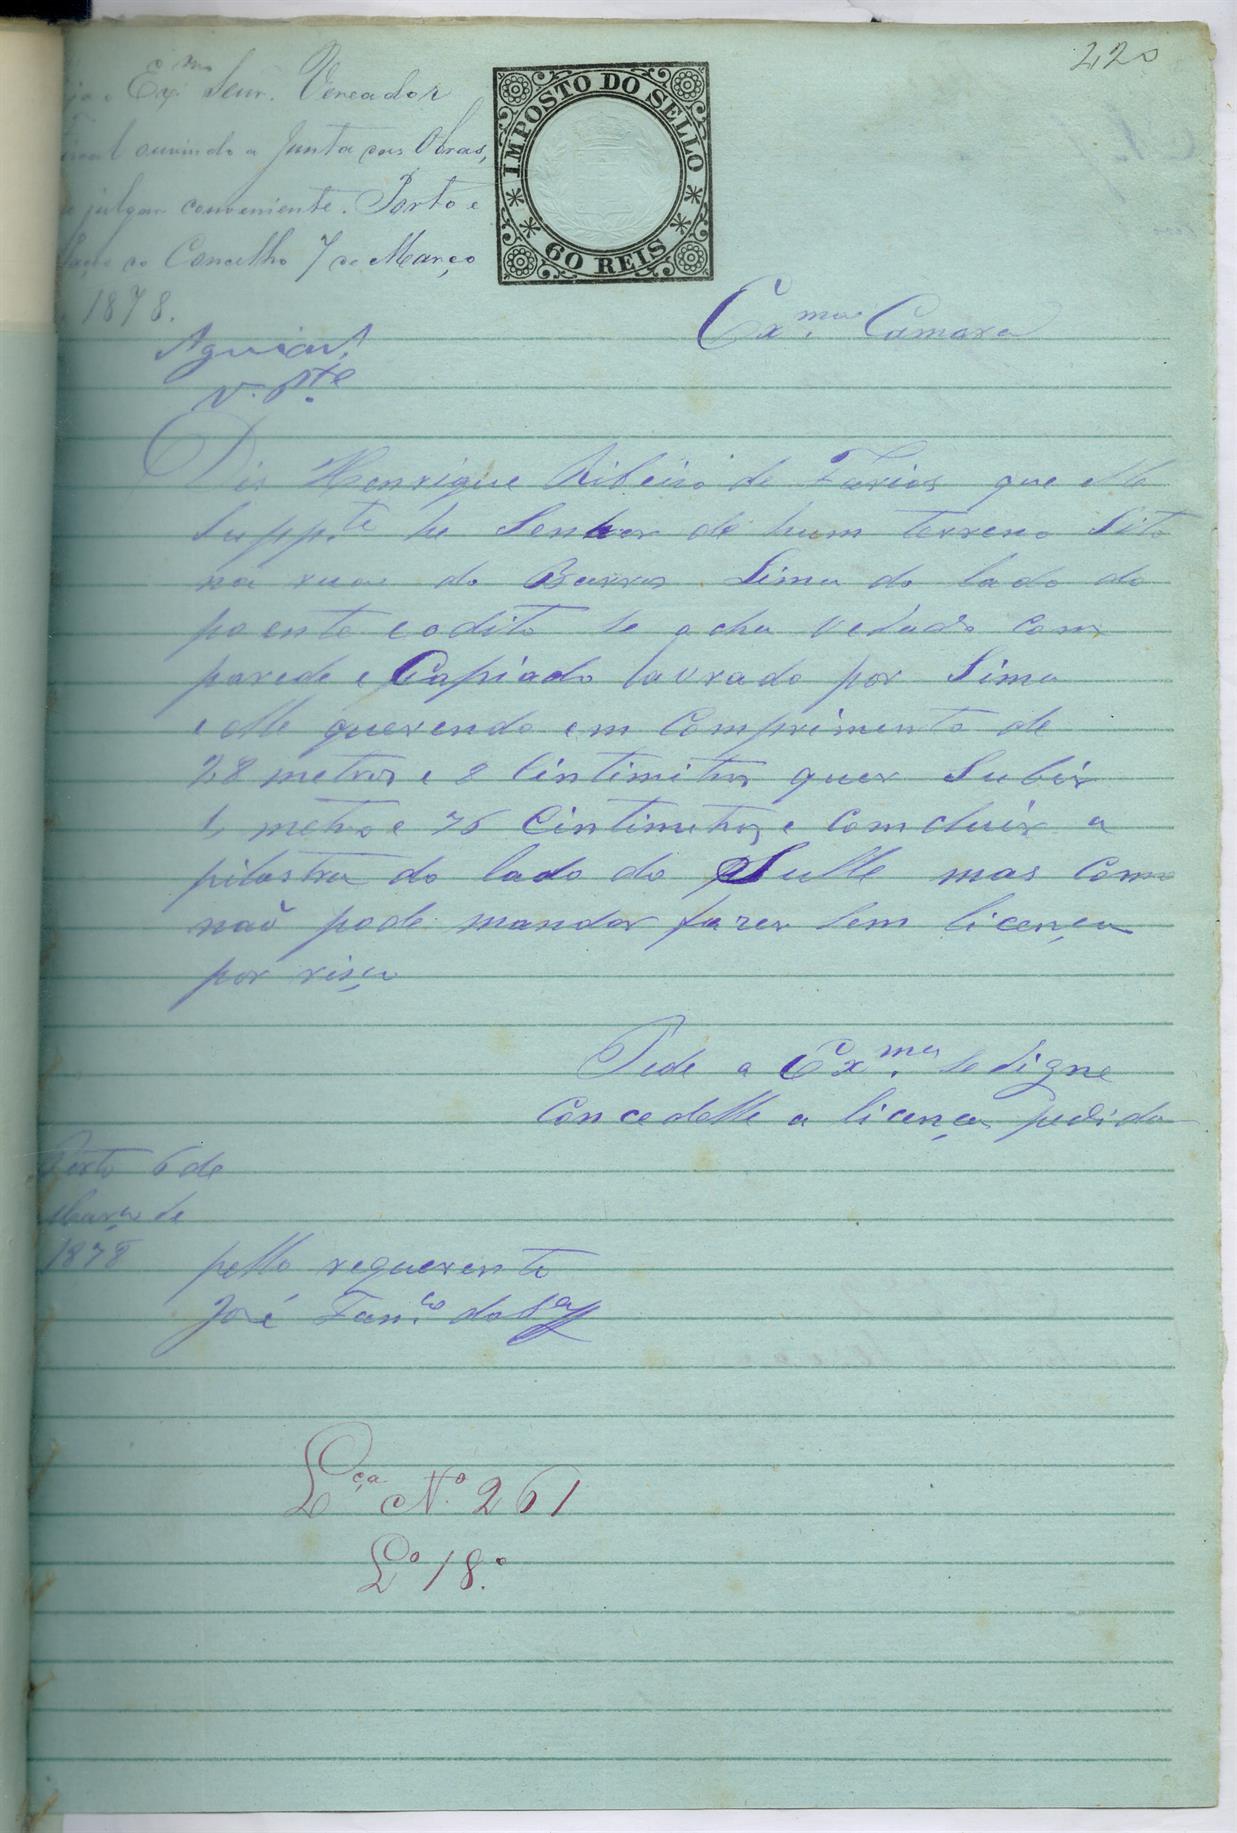 220
Exmo Senr. Vereador
ouvindo a Junta das Obras,
julgar conveniente. Porto e
Paços do Concelho 7 de Março
1878.
Aguiar
V. Pte
IMPOSTO DO SELLO
60 REIS
Exma. Camara
Dis Henrique Ribeiro de Farias que elle
Suppte he Senhor de hum terreno Sito
na rua do Barros Lima do lado do
poente e o dito se acha vedado com
parede e Capiado lavrado por Sima
e elle querendo em Comprimento de
28 metros e 2 Cintimitros quer Subir
1 metro e 76 Cintimetros e comcluir a
pilastra do lado do Sulle mas como
naõ pode mandar fazer sem licença
por risso
Pede a Exma. se digne
Concedelle a licença pedida
Porto 6 de
Março de
1878
pello requerente
José Fan.co da Sa
Lça No. 261
Lo 18.o